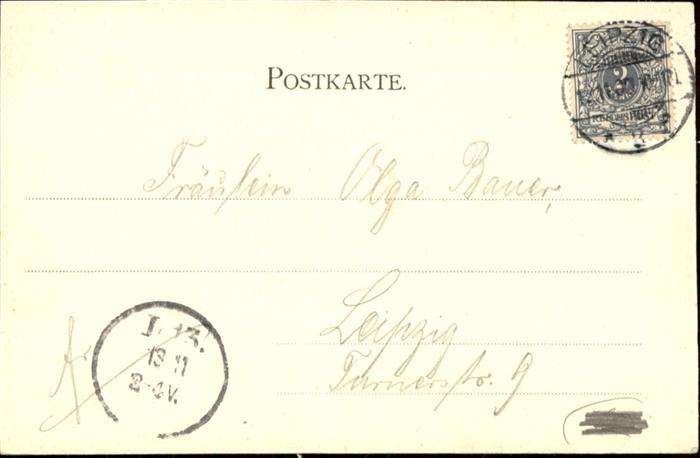 POSTKARTE.
LEIPZIG
REICHSPOST
Fräulein Olga Bauer,
Leipzig
Turnerstr. 9
13 11
2-4V.